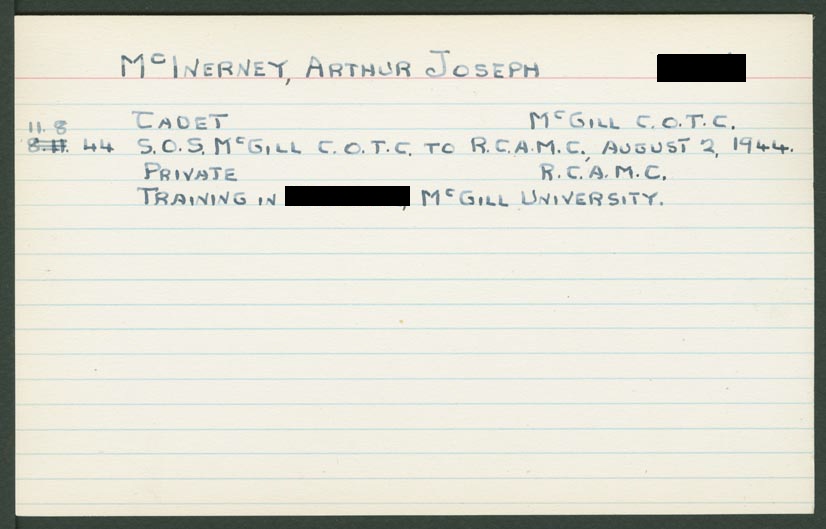 McINERNEY, ARTHUR JOSEPH
CADET McGILL C.O.T.C.
11.8
44 S.O.S. McGILL C.O.T.C. TO R.C.A.M.C., AUGUST 2, 1944.
PRIVATE R.C.A.M.C.
TRAINING IN , McGILL UNIVERSITY.